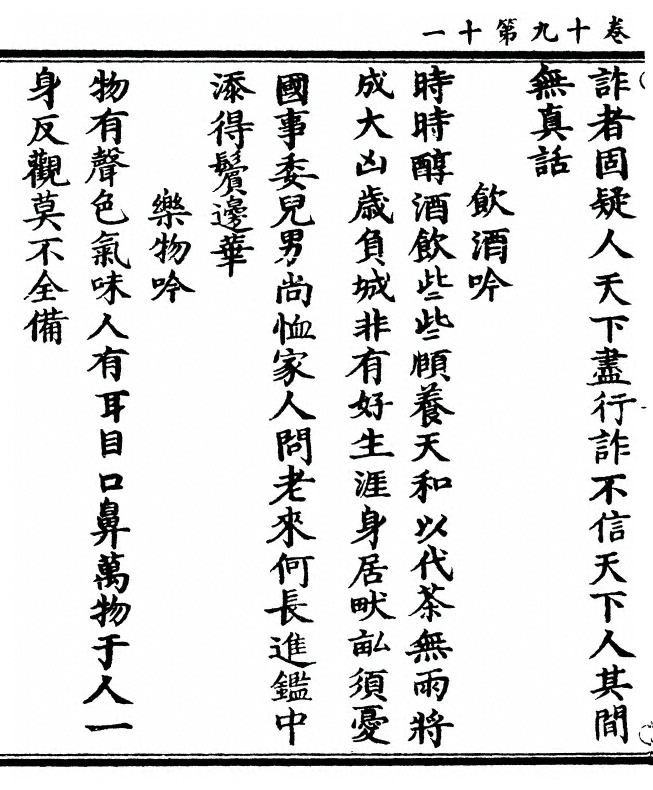 卷十九第十一
詐者固疑人天下盡行詐不信天下人其間
無真話
飲酒吟
時時醇酒飲些些頤養天和以代茶無雨將
成大凶歳負城非有好生涯身居畎畆須憂
國事委兒男尚恤家人問老來何長進鑑中
添得鬢邊華
樂物吟
物有聲色氣味人有耳目口鼻萬物于人一
身反觀莫不全備